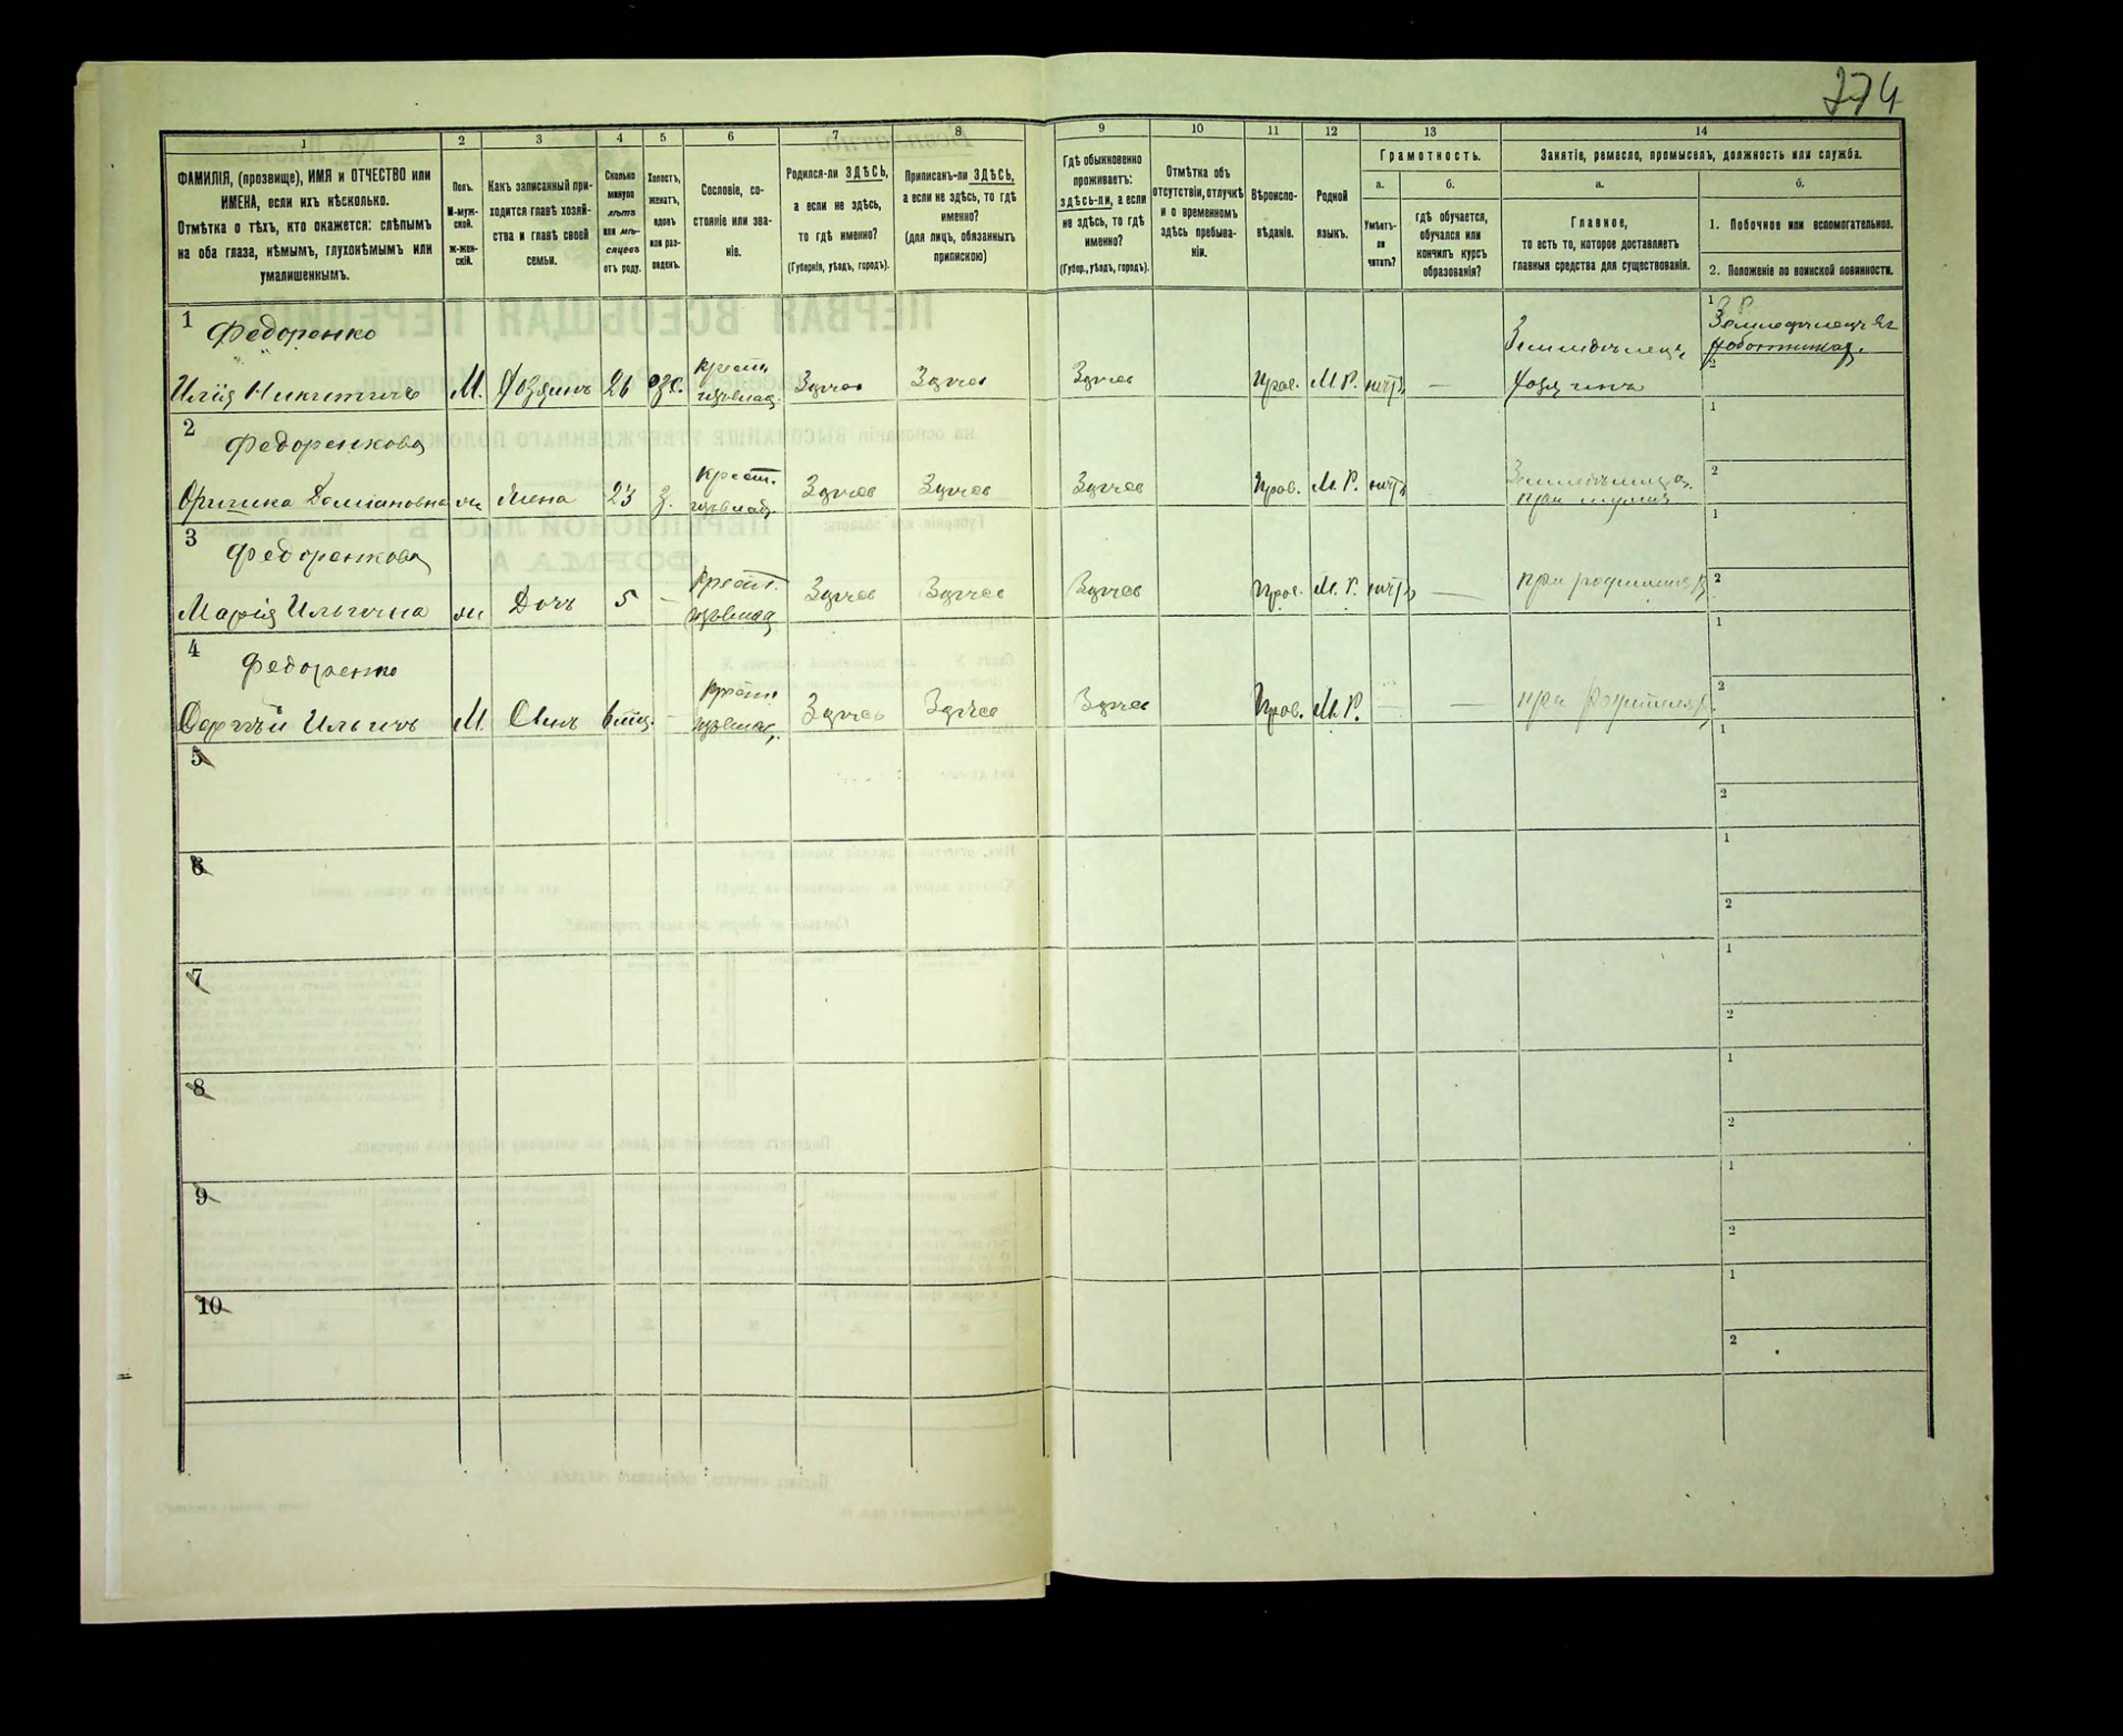 274
1
2
3
4
5
6
7
8
9
10
11
12
13
14
ФАМИЛІЯ, (прозвище), ИМЯ и ОТЧЕСТВО или
ИМЕНА, если ихъ нѣсколько.
Отмѣтка о тѣхъ, кто окажется: слѣпымъ
на оба глаза, нѣмымъ, глухонѣмымъ или
умалишеннымъ.
Полъ.
М-муж-
ской.
Ж-жен-
скій.
Какъ записанный при-
ходится главѣ хозяй-
ства и главѣ своей
семьи.
Сколько
минуло
лѣтъ
или мѣ-
сяцевъ
отъ роду.
Холостъ,
женатъ,
вдовъ
или раз-
веденъ.
Сословіе, со-
стояніе или зва-
ніе.
Родился-ли ЗДѢСЬ,
а если не здѣсь,
то гдѣ именно?
(Губернія, уѣздъ, городъ).
Приписанъ-ли ЗДѢСЬ,
а если не здѣсь, то гдѣ
именно?
(для лицъ, обязанныхъ
припискою)
Гдѣ обыкновенно
проживаетъ:
здѣсь-ли, а если
не здѣсь, то гдѣ
именно?
(Губер., уѣздъ, городъ).
Отмѣтка объ
отсутствіи, отлучкѣ
и о временномъ
здѣсь пребыва-
ніи.
Вѣроиспо-
вѣданіе.
Родной
языкъ.
Грамотность.
а.
Умѣетъ-
ли
читать?
б.
гдѣ обучается,
обучался или
кончилъ курсъ
образованія?
Занятіе, ремесло, промыселъ, должность или служба.
а.
Главное,
то есть то, которое доставляетъ
главныя средства для существованія.
б.
1. Побочное или вспомогательное.
2. Положеніе по воинской повинности.
1
Федоренко
Илія Никитичъ
М.
Хозяинъ
26
Крест.
Здѣсь
Здѣсь
Здѣсь
Прав.
М. Р.
нѣтъ
—
Земледѣлецъ
Хозяинъ
1
2
2
Федоренкова
Домiановна
ж
Жена
23
З.
Крест.
Здѣсь
Здѣсь
Здѣсь
Прав.
М. Р.
нѣтъ
при мужѣ
1
2
3
Федоренкова
Марія Ильична
ж
Дочь
5
-
Крест.
Здѣсь
Здѣсь
Здѣсь
Прав.
М. Р.
нѣтъ
—
при родителяхъ
1
2
4
Федоренко
Сергѣй Ильичъ
М.
Сынъ
6 мѣс.
-
Крест.
Здѣсь
Здѣсь
Здѣсь
Прав.
М. Р.
—
—
при родителяхъ
1
2
5
1
2
6
1
2
7
1
2
8
1
2
9
1
2
10
1
2